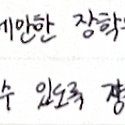 제안한 장학
수 있도록